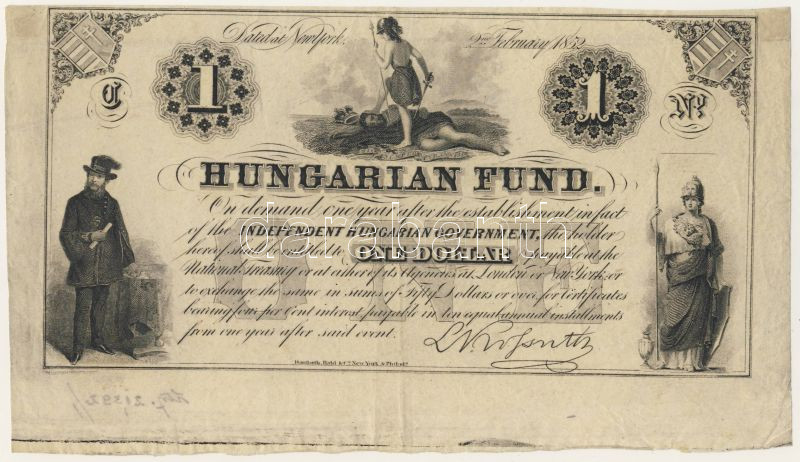 Dated at New York. 2nd February 1852
1 1
NY
HUNGARIAN FUND.
On demand one year after the establishment, in fact
of the INDEPENDENT HUNGARIAN GOVERNMENT, the holder
hereof shall be entitled to ONE DOLLAR payable at the
National Treasury or at either of its Agencies at London or New York, or
to exchange the same in sums of Fifty Dollars or over for certificates
bearing four per Cent interest, payable in ten equal annual installments
from one year after said event.
L Kossuth
Danforth, Bald & Co. New York & Philada.
darabanth